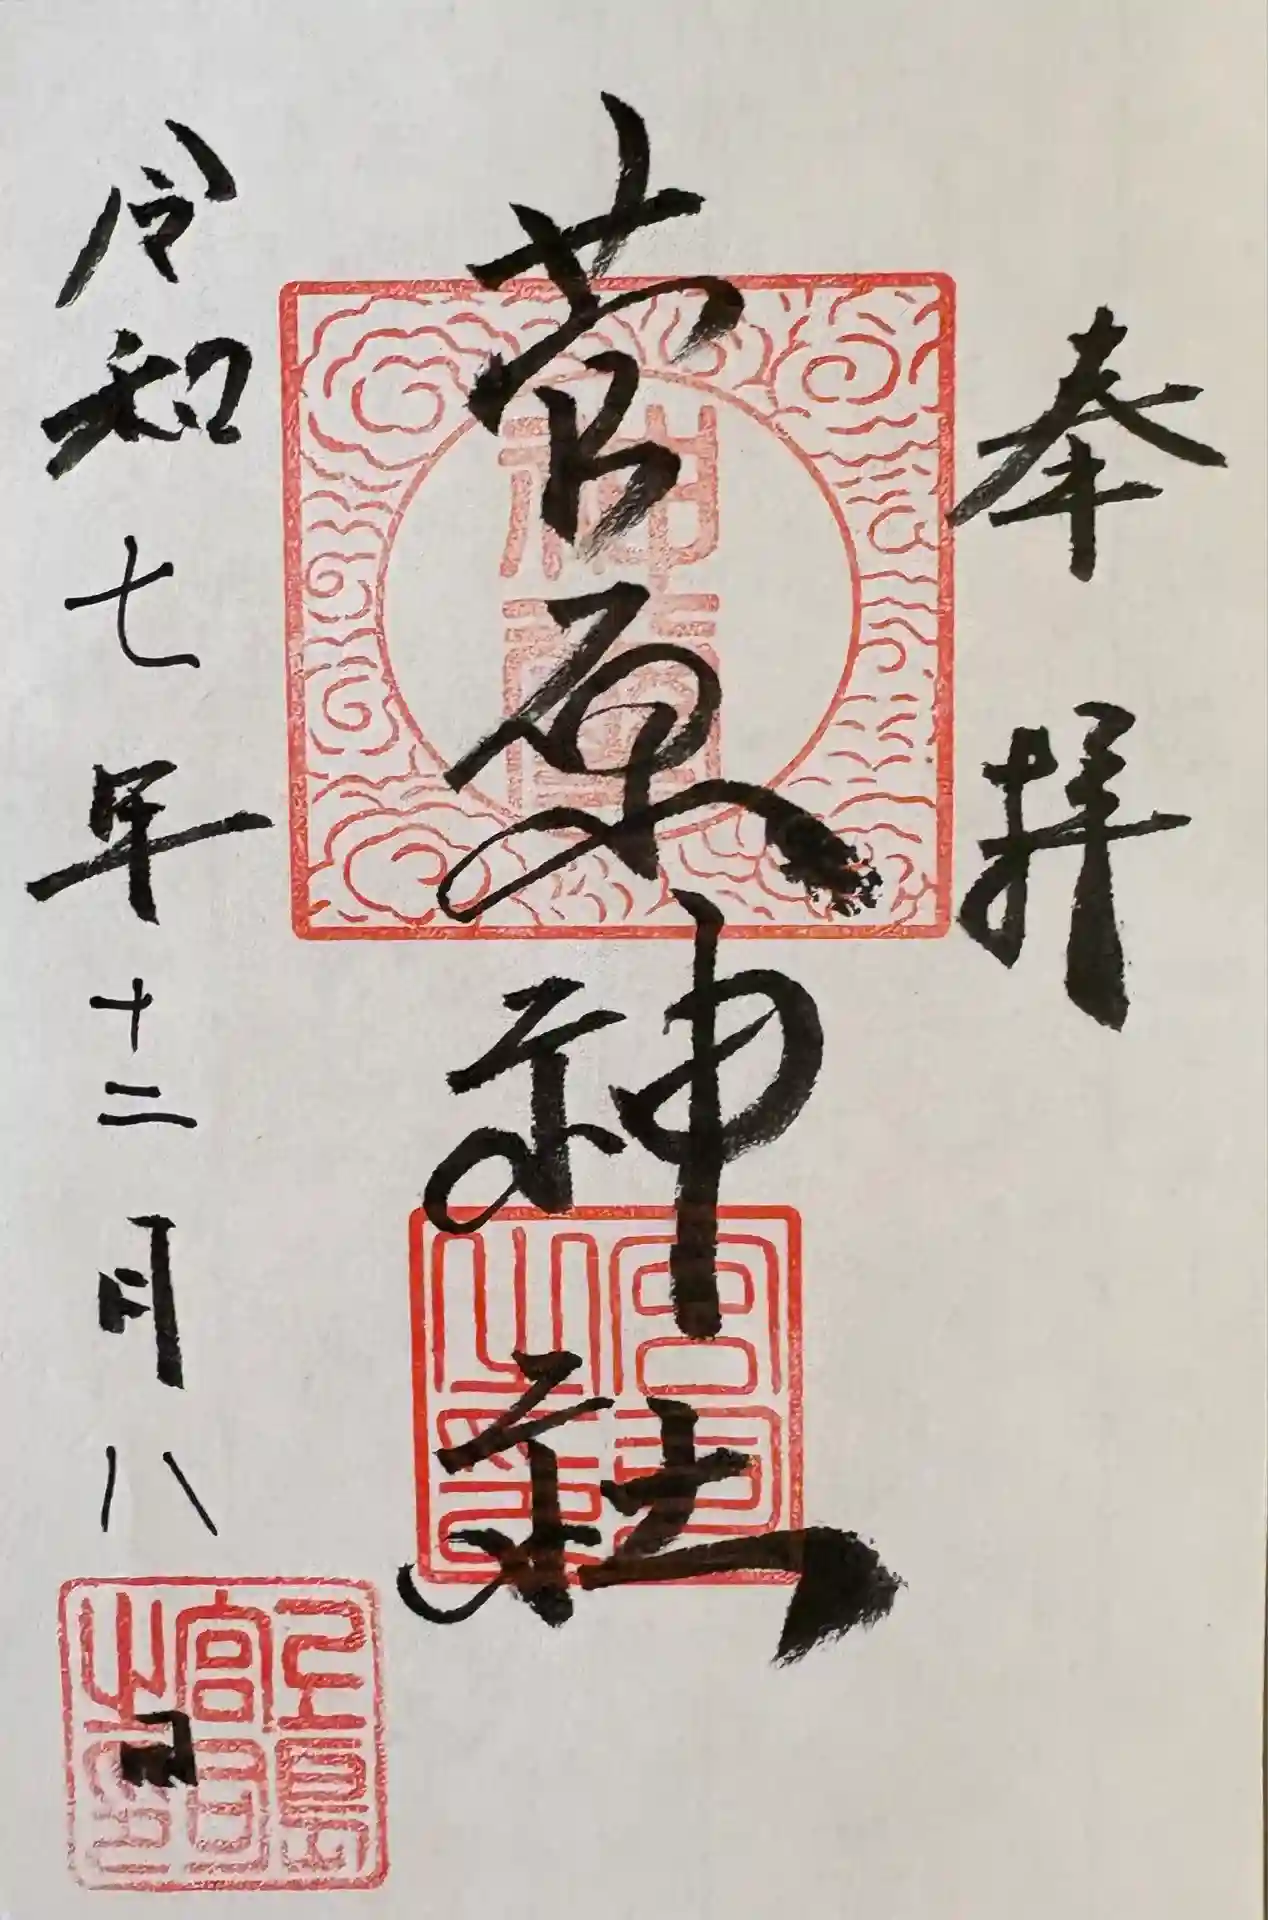 奉拝
菅原神社
令和七年十二月八日
神璽
宮司之印